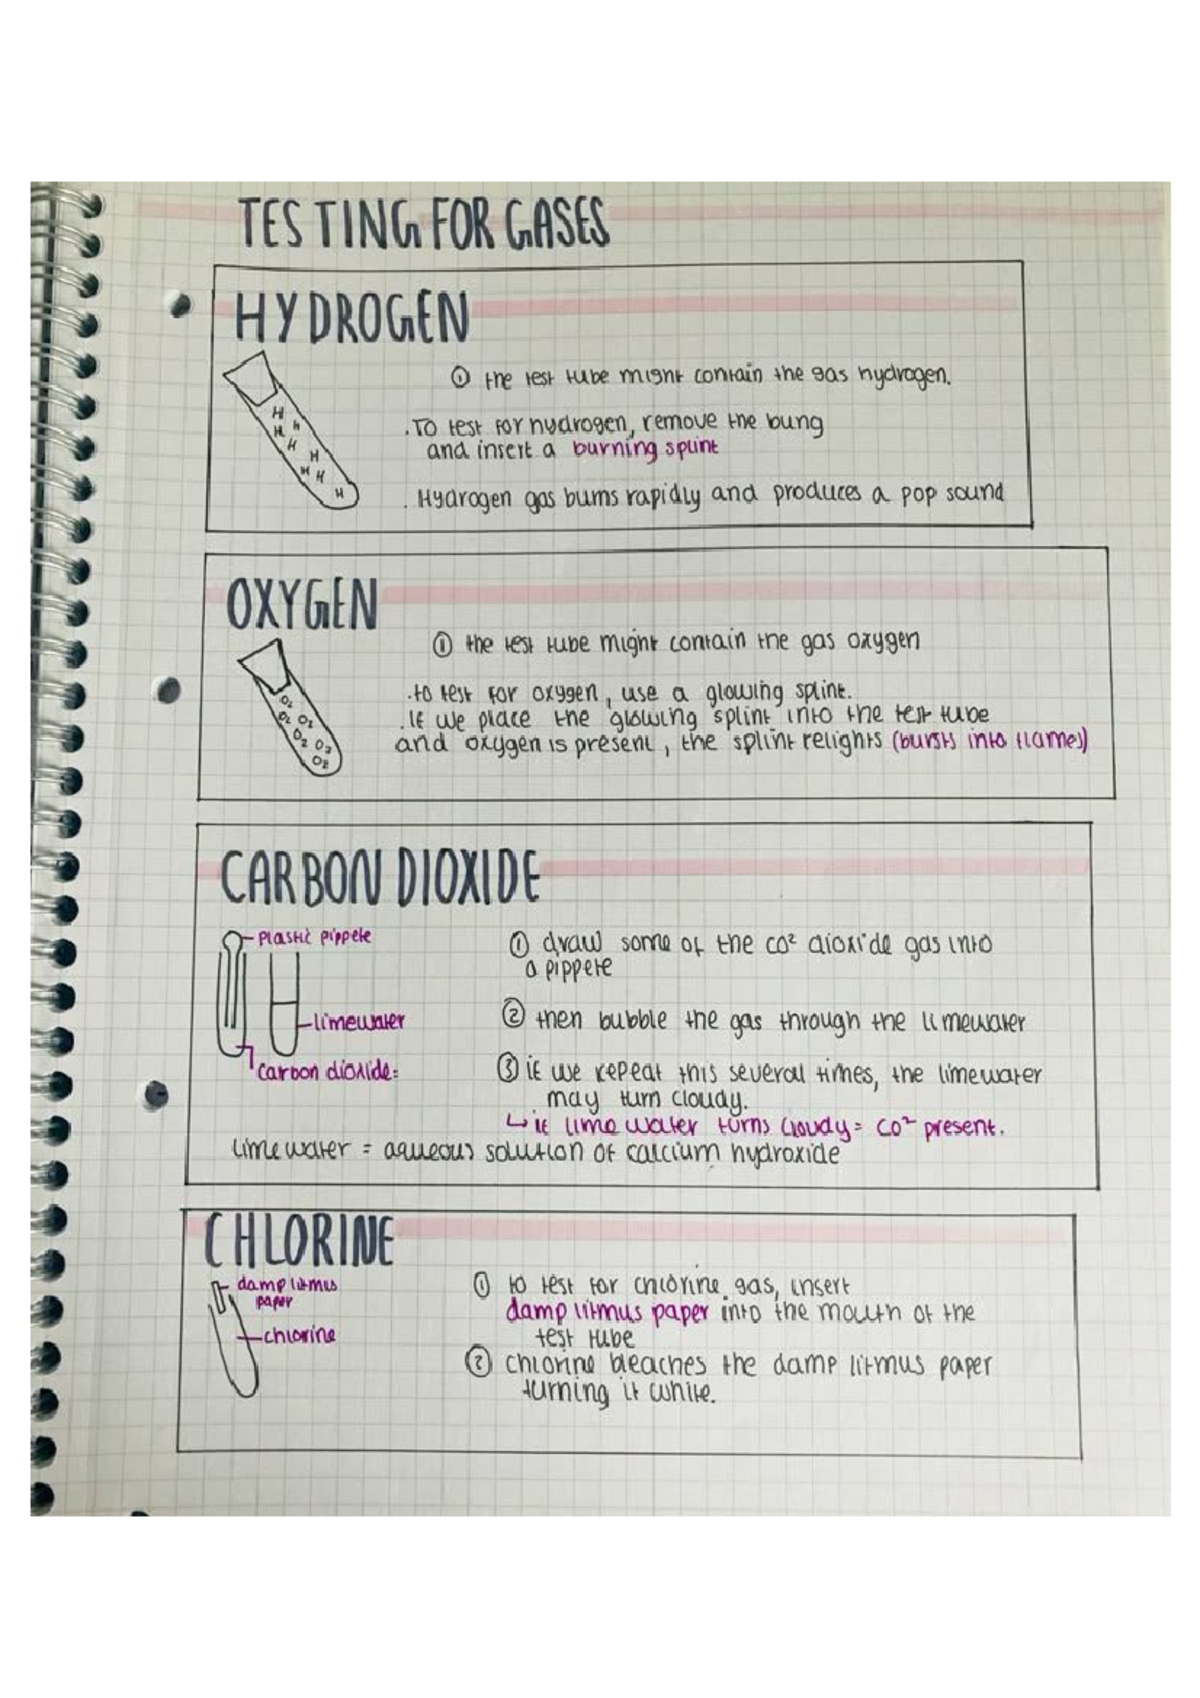 TESTING FOR GASES
HYDROGEN
① the test tube might contain the gas hydrogen.
. To test for hydrogen, remove the bung
and insert a burning splint
. Hydrogen gas burns rapidly and produces a pop sound
H
H H
H
H
H H
H
OXYGEN
① the test tube might contain the gas oxygen
. to test for oxygen, use a glowing splint.
. If we place the glowing splint into the test tube
and oxygen is present, the splint relights (bursts into flames)
O2
O2 O2
O2 O2
O2
CARBON DIOXIDE
plastic pippete
limewater
carbon dioxide:
① draw some of the co² dioxide gas into
a pippete
② then bubble the gas through the limewater
③ if we repeat this several times, the limewater
may turn cloudy.
↳ if lime water turns cloudy = CO² present.
limewater = aqueous solution of calcium hydroxide
CHLORINE
damp litmus
paper
chlorine
① to test for chlorine gas, insert
damp litmus paper into the mouth of the
test tube
② chlorine bleaches the damp litmus paper
turning it white.